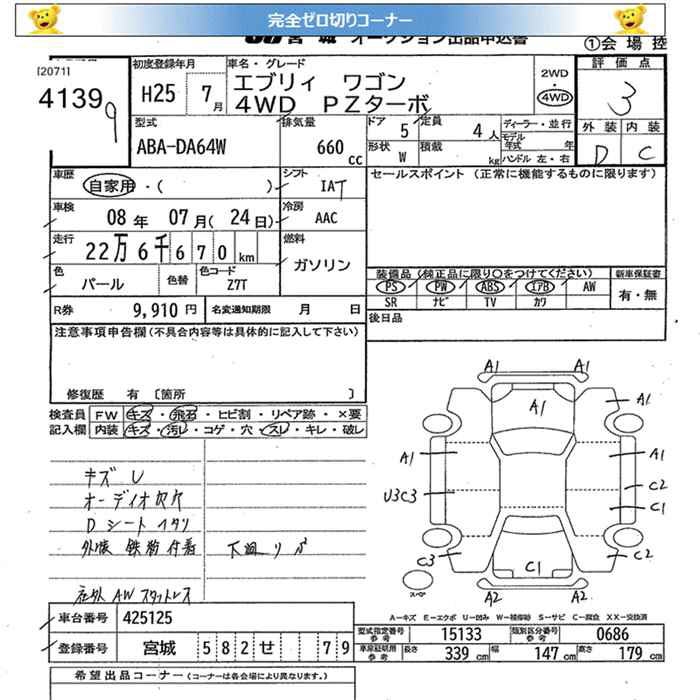 完全ゼロ切りコーナー
宮城 オークション出品申込書
①会場控
[2071]
41399
初度登録年月
H25 7月
車名・グレード
エブリィ ワゴン
4WD PZターボ
2WD
4WD
評価点
3
外装 内装
D C
型式
ABA-DA64W
排気量
660 cc
ドア 5
定員 4人
形状 W
積載 kg
ディーラー・並行
モデル年式 年
ハンドル 左・右
車歴
自家用・( )
シフト
IAT
セールスポイント (正常に機能するものに限ります)
車検
08年 07月(24日)
冷房
AAC
走行
22万6千670km
燃料
ガソリン
色
パール
色替
色コード
Z7T
装備品(純正品に限り○をつけてください)
PS PW ABS エアB AW
SR ナビ TV カワ
新車保証書
有・無
R券 9,910円
名変通知期限 月 日
後日品
注意事項申告欄(不具合内容等は具体的に記入して下さい)
修復歴 有 〔箇所 〕
検査員記入欄
FW キズ・飛石・ヒビ割・リペア跡・×要
内装 キズ・汚レ・コゲ・穴・スレ・キレ・破レ
キズ U
オーディオ欠穴
Dシート イタリ
外装 鉄粉付着
下廻りサビ
社外 AW スタットレス
A1 A1
A1
A1
A1 A1
C2
U3C3
C1
C3
C1
C2
A2 A2
スペア
A-キズ E-エクボ U-凹み W-補修跡 S-サビ C-腐食 XX-交換済
車台番号 425125
登録番号 宮城 582 せ 79
型式指定番号 参考 15133
類別区分番号 参考 0686
車庫証明用 参考
長さ 339cm
幅 147cm
高さ 179cm
希望出品コーナー(コーナーは各会場により異なります。)